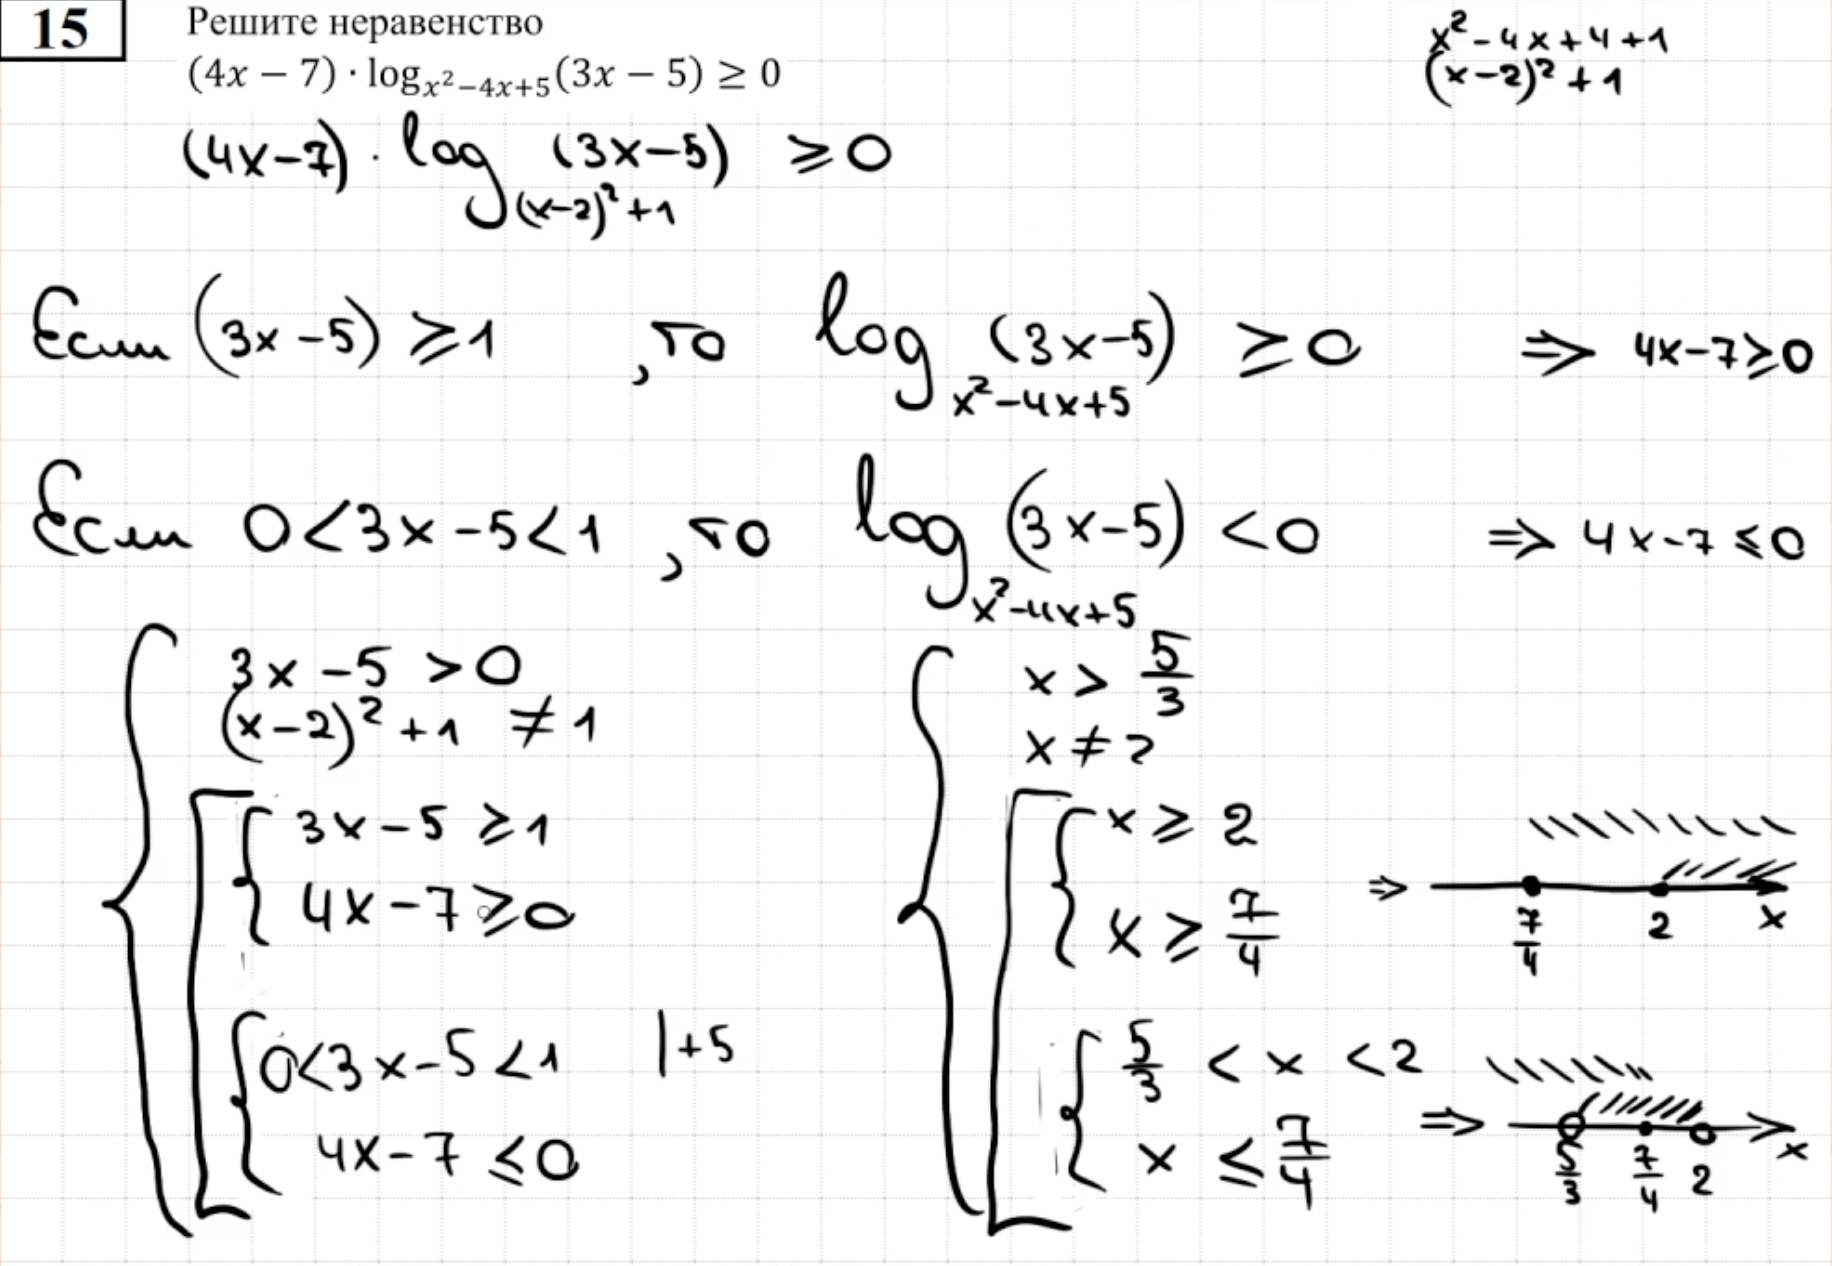 15
Решите неравенство
(4x − 7) · log_{x²−4x+5}(3x − 5) ≥ 0
x² − 4x + 4 + 1
(x−2)² + 1
(4x−7) · log_{(x−2)²+1} (3x−5) ≥ 0
Если (3x −5) ≥ 1 , то log_{x²−4x+5} (3x−5) ≥ 0 ⇒ 4x−7 ≥ 0
Если 0<3x −5<1 , то log_{x²−4x+5} (3x−5) < 0 ⇒ 4x−7 ≤ 0
3x −5 > 0
(x−2)² + 1 ≠ 1
3x−5 ≥ 1
4x−7 ≥ 0
0<3x−5<1 |+5
4x−7 ≤ 0
x > 5/3
x ≠ 2
x ≥ 2
x ≥ 7/4
⇒ 7/4 2 x
5/3 < x < 2
x ≤ 7/4
⇒ 5/3 7/4 2 x